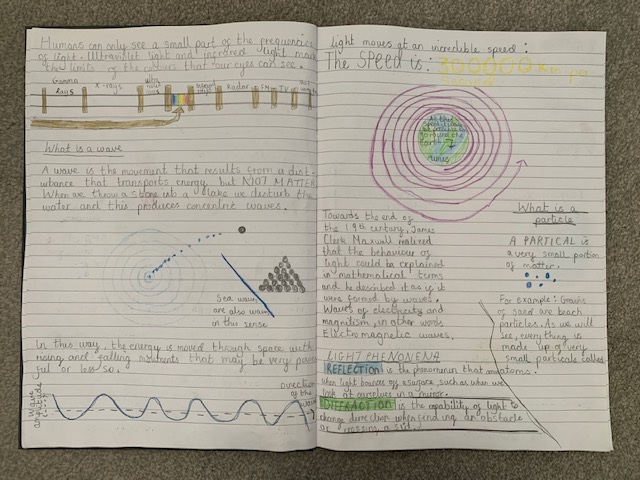 Humans can only see a small part of the frequencies
of light. Ultraviolet light and infrared light mark
the limits of the colours that our eyes can see.
Gamma
Rays
X-rays
ultra
violet
Radar
FM
TV
What is a wave
A wave is the movement that results from a dist-
urbance that transports energy but NOT MATTER
When we throw a stone into a lake we disturb the
water and this produces concentric waves.
Sea waves
are also waves
in this sense
In this way, the energy is moved through space with
rising and falling moments that may be very power
ful or less so.
wave
amplitude
Direction
of the
wave
Light moves at an incredible speed:
The SPEED is: 300000 km per
second
At this
Earth 7
times
Towards the end of
the 19th century, James
Clerk Maxwell noticed
that the behaviour of
light could be explained
in mathematical terms
and he described it as if it
were formed by waves.
Waves of electricity and
magnitism, in other words
Electromagnetic waves.
What is a
particle
A PARTICAL is
a very small portion
of matter.
For example: Grains
of sand are beach
particles. As we will
see, everything is
made up of very
small particals called
atoms.
LIGHT PHENONENA
REFLECTION is the phenomenon that
when light bounces off a surface, such as when we
look at ourselves in a mirror.
DIFFRACTION is the capability of light to
change direction when fending an obstacle
or crossing a slit.